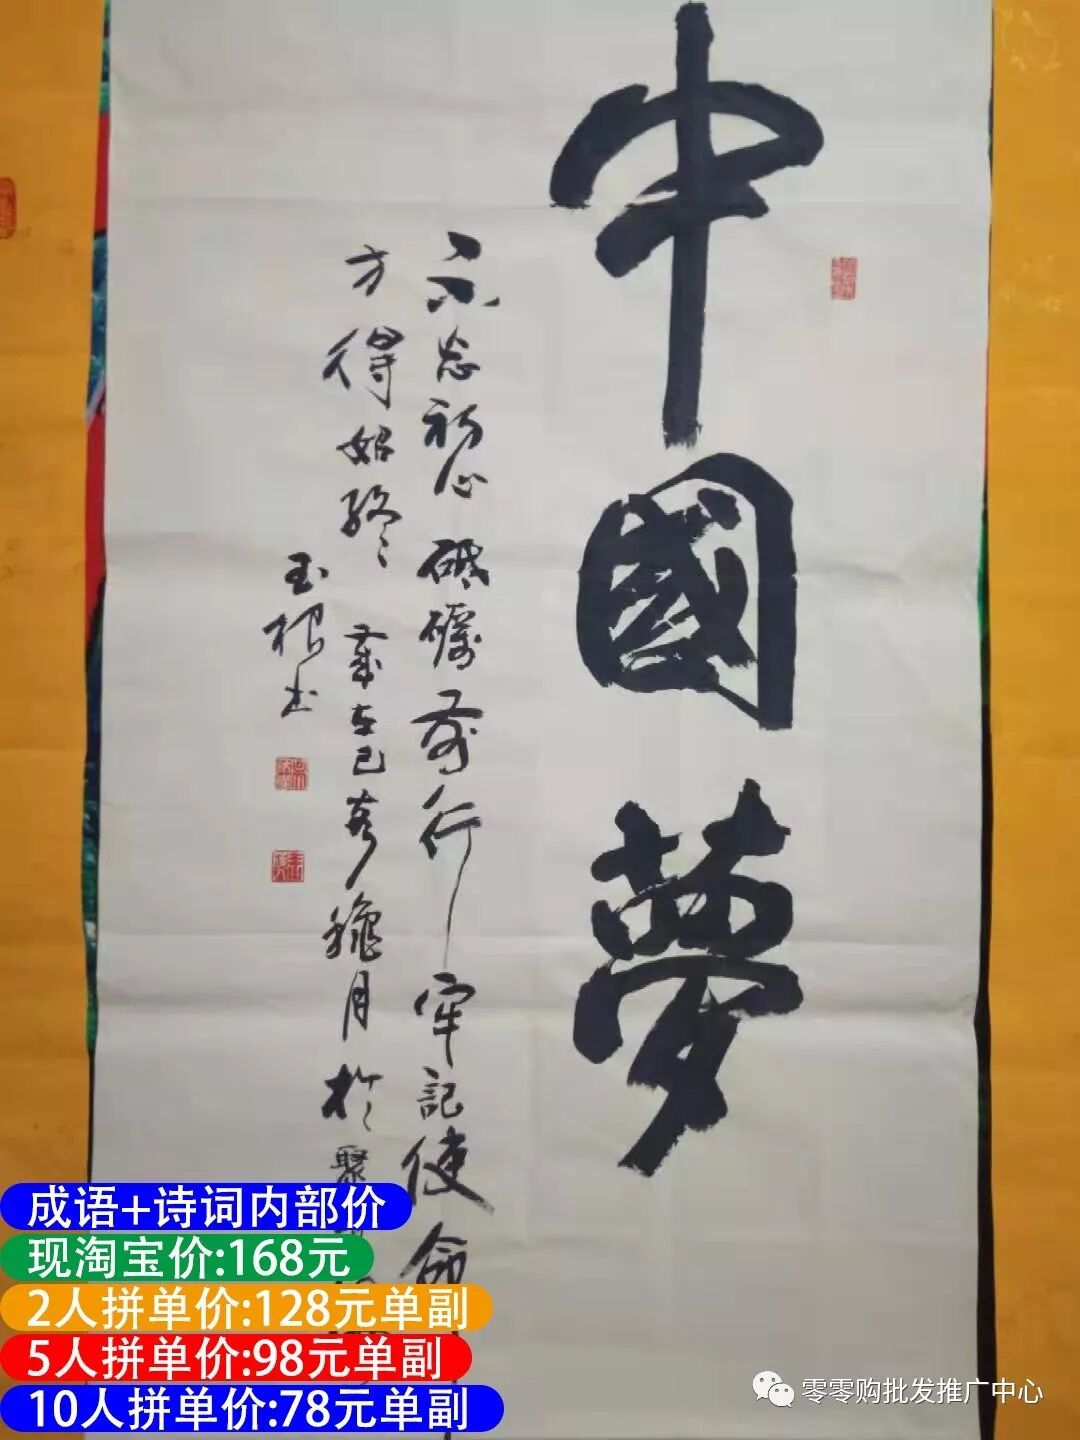 中國夢
不忘初心砥礪前行牢記使命
方得始終 歲在己亥龝月於聚
玉根书
成语+诗词内部价
现淘宝价:168元
2人拼单价:128元单副
5人拼单价:98元单副
10人拼单价:78元单副
零零购批发推广中心